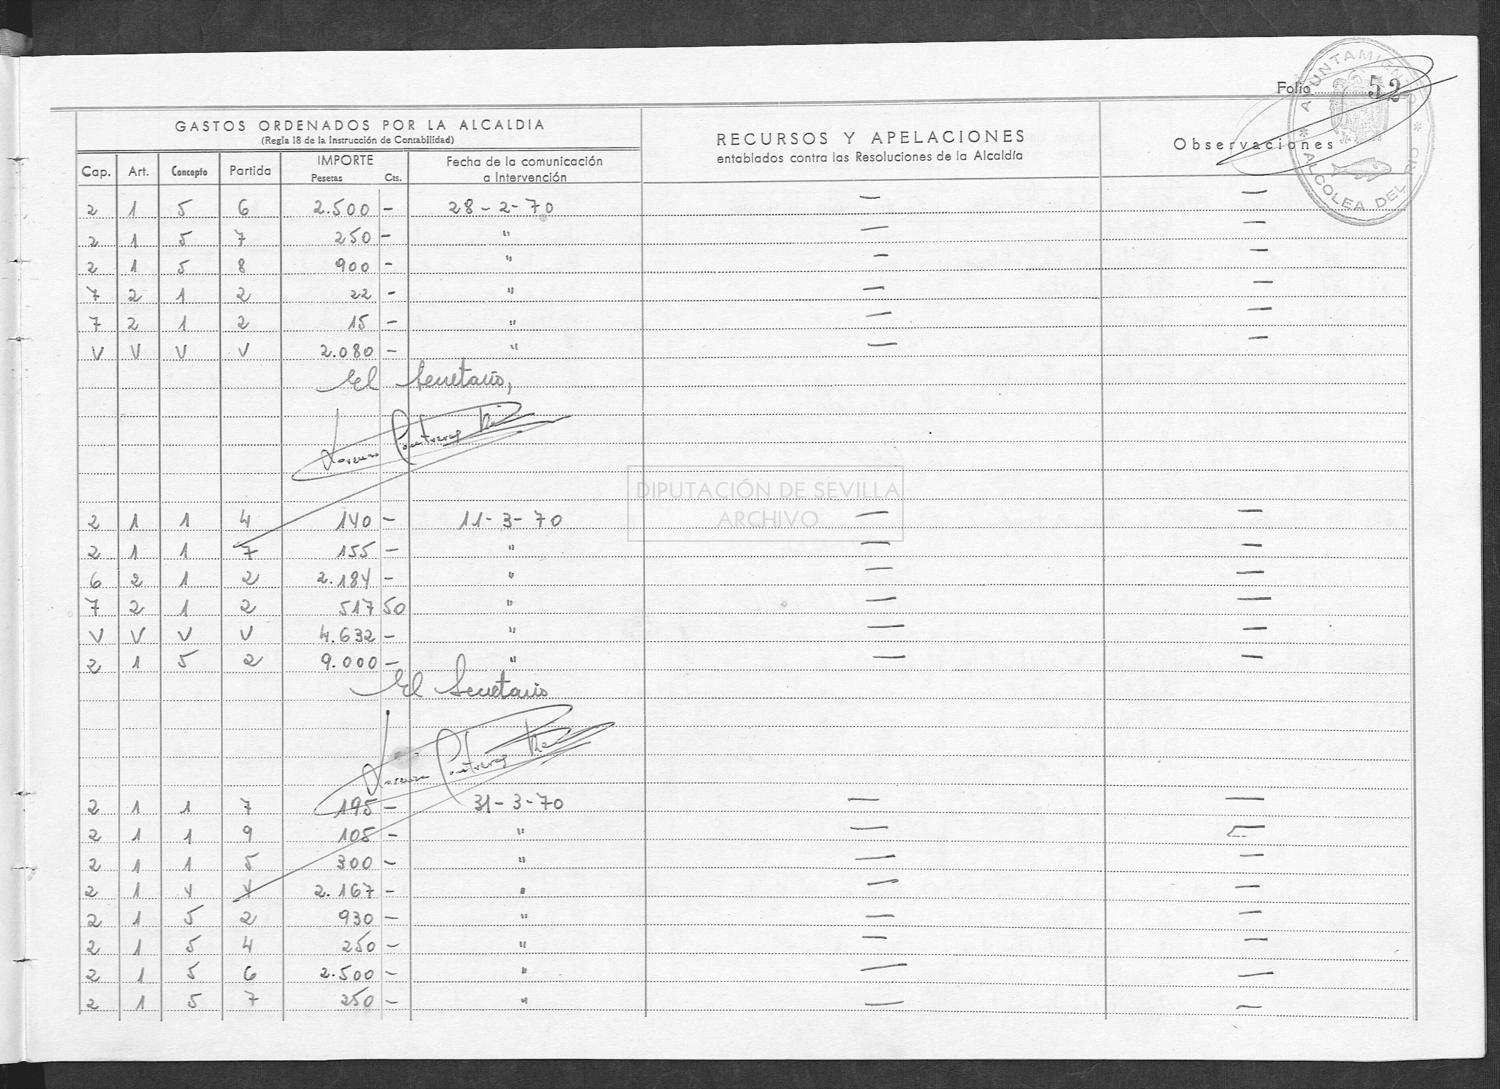 Folio 52
AYUNTAMIENTO * ALCOLEA DEL RIO *
GASTOS ORDENADOS POR LA ALCALDIA
(Regla 18 de la Instrucción de Contabilidad)
RECURSOS Y APELACIONES
entablados contra las Resoluciones de la Alcaldía
Observaciones
Cap. Art. Concepto Partida IMPORTE Pesetas Cts. Fecha de la comunicación a Intervención
2 1 5 6 2.500 - 28-2-70 — —
2 1 5 7 250 - " — —
2 1 5 8 900 - " — —
7 2 1 2 22 - " — —
7 2 1 2 15 - " — —
V V V V 2.080 - " — —
El Secretario,
Lorenzo Contreras
DIPUTACIÓN DE SEVILLA
ARCHIVO
2 1 1 4 140 - 11-3-70 — —
2 1 1 7 155 - " — —
6 2 1 2 2.184 - " — —
7 2 1 2 517 50 " — —
V V V V 4.632 - " — —
2 1 5 2 9.000 - " — —
El Secretario
Lorenzo Contreras
2 1 1 7 195 - 31-3-70 — —
2 1 1 9 105 - " — —
2 1 1 5 300 - " — —
2 1 4 4 2.167 - " — —
2 1 5 2 930 - " — —
2 1 5 4 250 - " — —
2 1 5 6 2.500 - " — —
2 1 5 7 250 - " — —